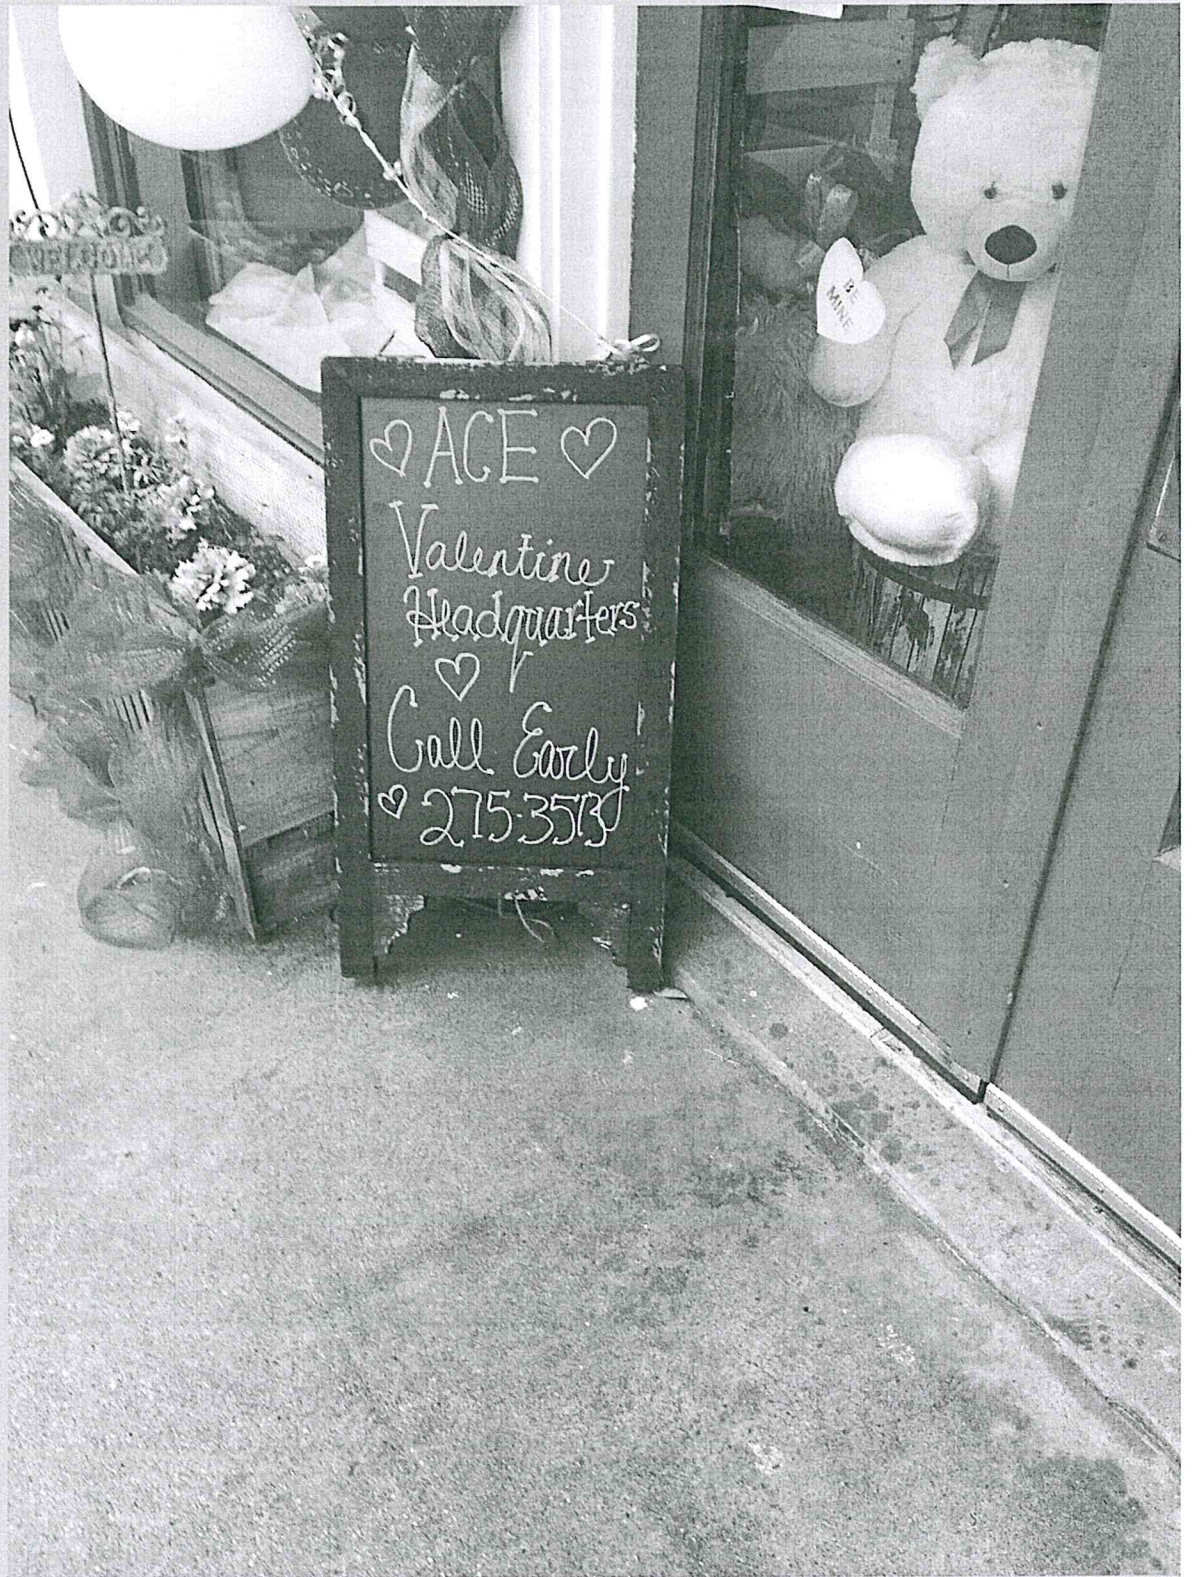 WELCOME
BE
MINE
♡ ACE ♡
Valentine
Headquarters
♡
Call Early
♡ 275-3573